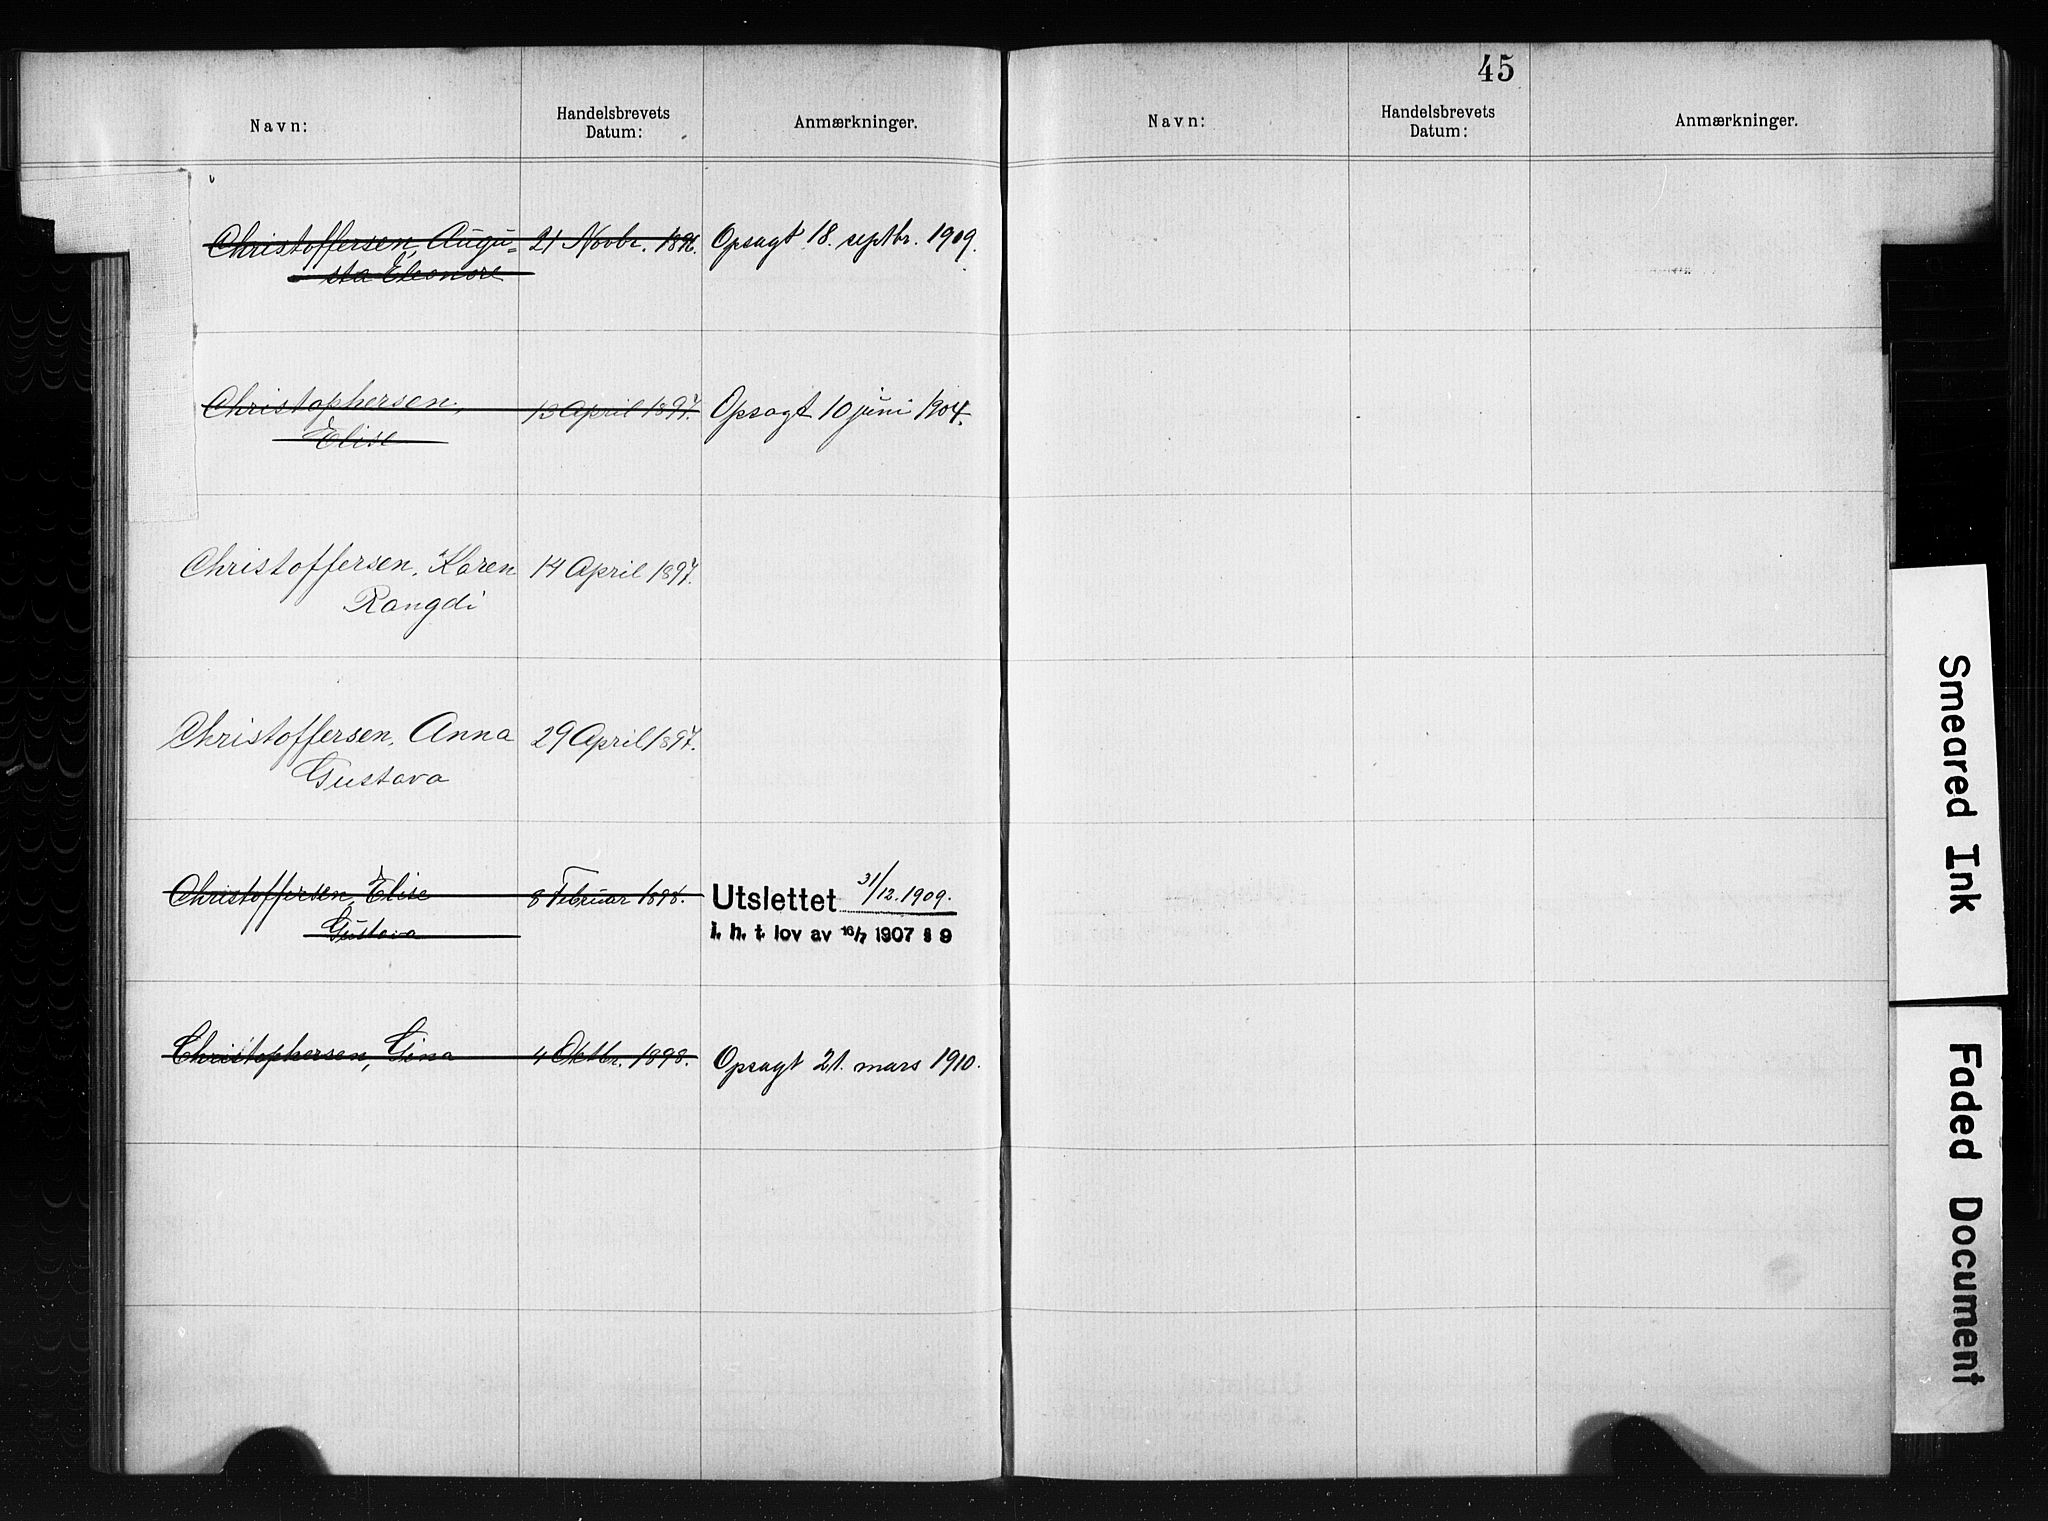 Navn:
Handelsbrevets
Datum:
Anmærkninger.
Christoffersen, Augu= 21 Novbr. 1896. Opsagt 18. septbr. 1909.
sta Eleonore
Christophersen, 13 April 1897. Opsagt 10 juni 1904.
Elise
Christoffersen, Karen 14 April 1897.
Rangdi
Christoffersen, Anna 29 April 1897.
Gustava
Christoffersen, Elise 8 Februar 1898. Utslettet 31/12. 1909.
Gustava i. h. t. lov av 16/7 1907 § 9
Christophersen, Gina 4 Oktbr. 1898. Opsagt 21. mars 1910.
45
Navn:
Handelsbrevets
Datum:
Anmærkninger.
Smeared Ink
Faded Document